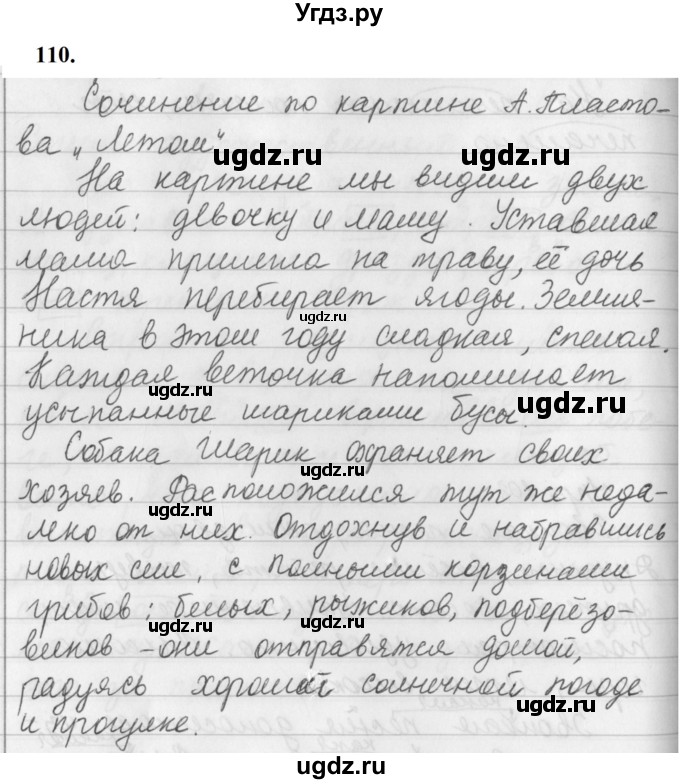 Угдз.ру
110.
Сочинение по картине А.Пласто-
ва „Летом"
ugdz.ru
На картине мы видим двух
людей: девочку и маму. Уставшая
ugdz.ru
мама прилегла на траву, её дочь
Настя перебирает ягоды. Земля-
ugdz.ru
ника в этом году сладкая, спелая.
Каждая веточка напоминает
ugdz.ru
ugdz.ru
усыпанные шариками бусы.
Собака Шарик охраняет своих
ugdz.ru
хозяев. Расположился тут же неда-
леко от них. Отдохнув и набравшись
ugdz.ru
новых сил, с полными корзинами
грибов: белых, рыжиков, подберёзо-
ugdz.ru
виков - они отправятся домой,
радуясь хорошей солнечной погоде
ugdz.ru
и прогулке.
ugdz.ru